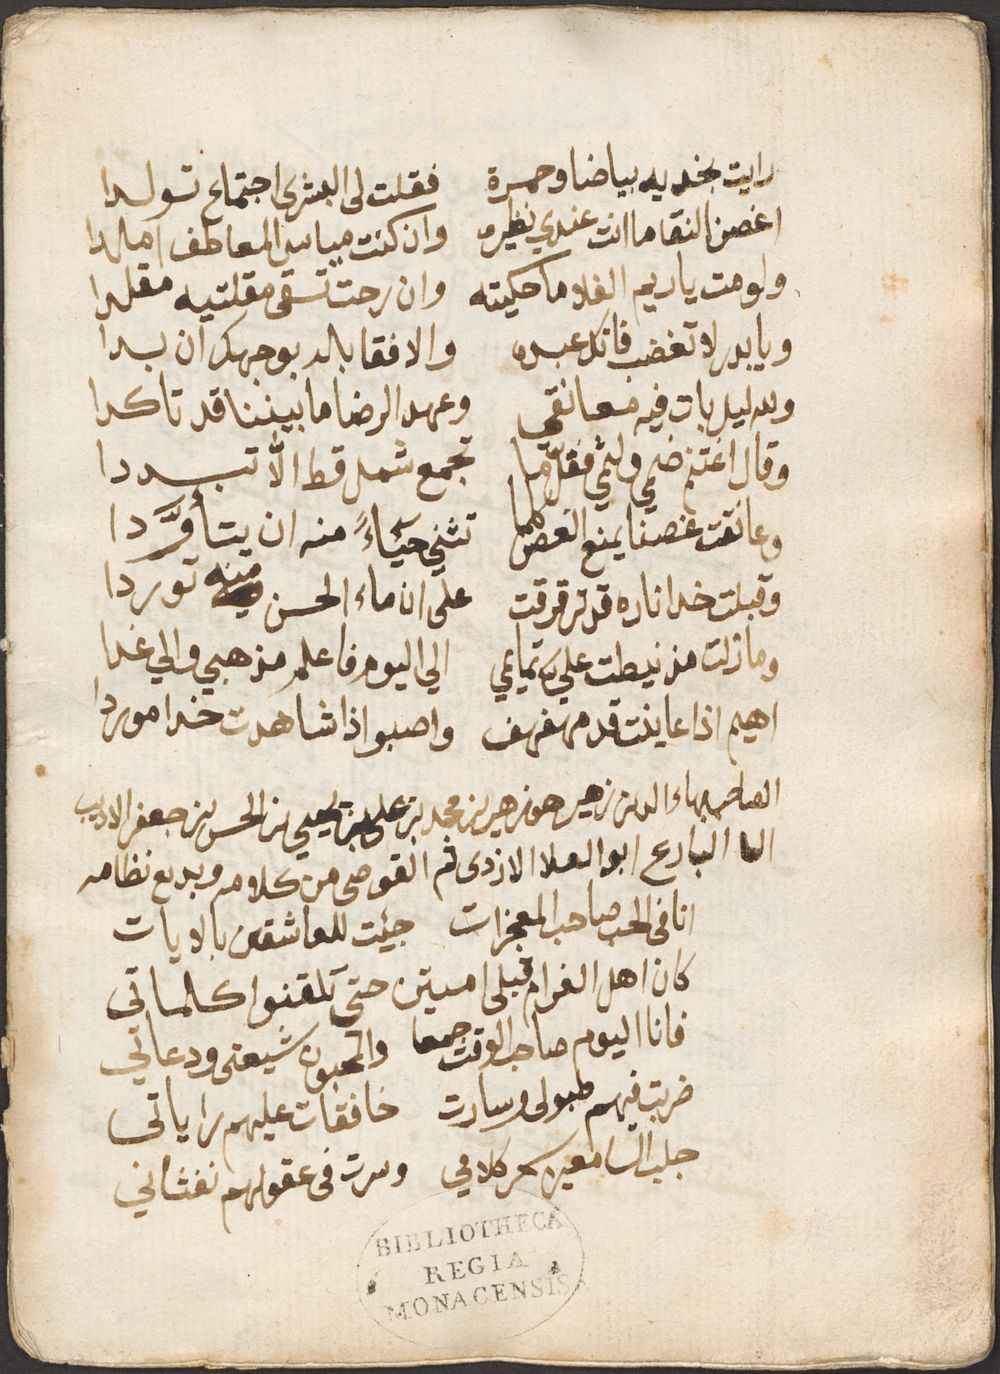 رايت بخديه بياضا وحمرة فقلت لى البشرى اجتماع تولدا
اغصن النقا ما انت عندي نظيره وان كنت مياس المعاطف املدا
ولو مت ياريم الفلا ما حكيته وان رحت تسقى مقلتيه مقلدا
ويا بدر لا تغضب فانك عبده والافقابله بوجهك ان بدا
ولله ليل بات فيه معانقي وعهد الرضا ما بيننا قد تاكدا
وقال اغتنم ضمي ولثمي فقلّما تجمع شمل قط الاّ تبددا
وعانقت غصنا يمنع الغصن تثني حيَاءً منه ان يتأوَّدا
وقبلت خدا ناره قد ترقرقت على ان ماء الحسن منه توردا
وما زلت مذ نيطت علي تمايمي الي اليوم فاعلم مذهبي والي غدا
اهيم اذا عاينت قد مهفهف واصبوا اذا شاهدت خدا موردا
الصاحب بهاء الدين زهير هو زهير بن محمد بن على بن يحيي بن الحسن بن جعفر الاديب
البارع ابو العلا الازدى ثم القوصى من كلامه وبديع نظامه
انا فى الحب صاحب المعجزات جيئت للعاشقين بالايات
كان اهل الغرام قبلى اميين حتى تلقنوا كلماتي
فانا اليوم صاحب الوقت جمعا والمحبون شيعتى ودعاتي
ضربت فيهم طبولى وسارت خافقات عليهم راياتى
جلب السامعين سحر كلامي وسرت فى عقولهم نفثاتي
BIBLIOTHECA
REGIA
MONACENSIS